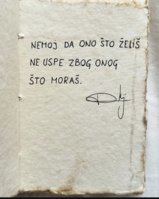 NEMOJ DA ONO ŠTO ŽELIŠ
NE USPE ZBOG ONOG
ŠTO MORAŠ.